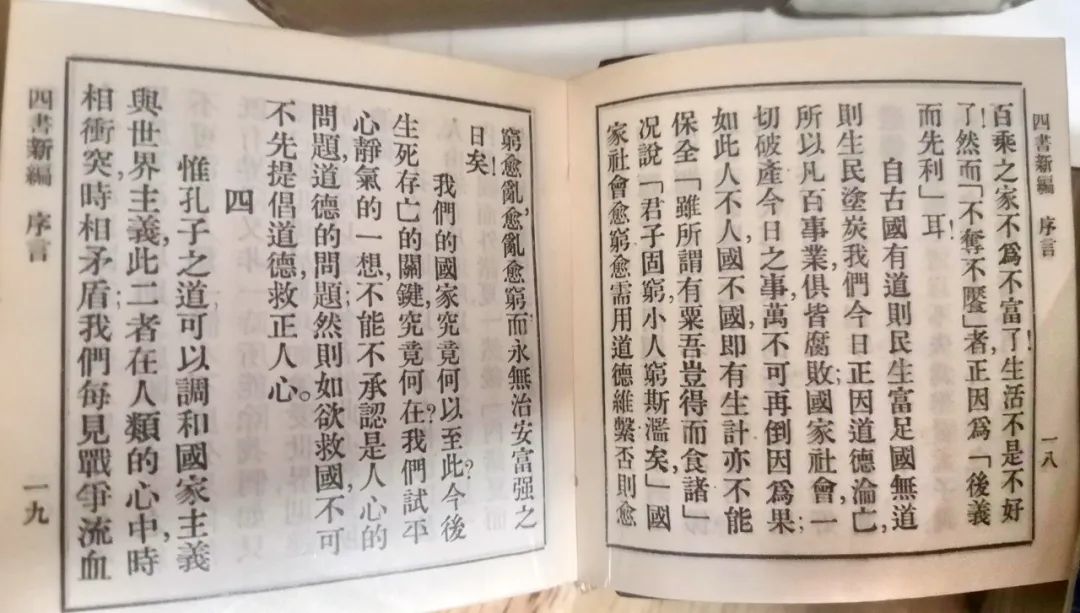 四書新編 序言
一八
百乘之家不爲不富了!生活不是不好
了!然而「不奪不饜」者,正因爲「後義
而先利」耳!
自古國有道則民生富足,國無道
則生民塗炭,我們今日正因道德淪亡,
所以凡百事業,俱皆腐敗;國家社會,一
切破產,今日之事,萬不可再倒因爲果,
如此人不人,國不國,即有生計,亦不能
保全,「雖所謂有粟,吾豈得而食諸」,
況說「君子固窮,小人窮斯濫矣」,國
家社會愈窮,愈需用道德維繫,否則愈
窮愈亂,愈亂愈窮,而永無治安富强之
日矣!
我們的國家究竟何以至此?今後
生死存亡的關鍵,究竟何在?我們試平
心靜氣的一想,不能不承認是人心的
問題,道德的問題;然則如欲救國,不可
不先提倡道德,救正人心。
四
惟孔子之道,可以調和國家主義
與世界主義,此二者在人類的心中,時
相衝突,時相矛盾;我們每見戰爭流血
四書新編 序言
一九